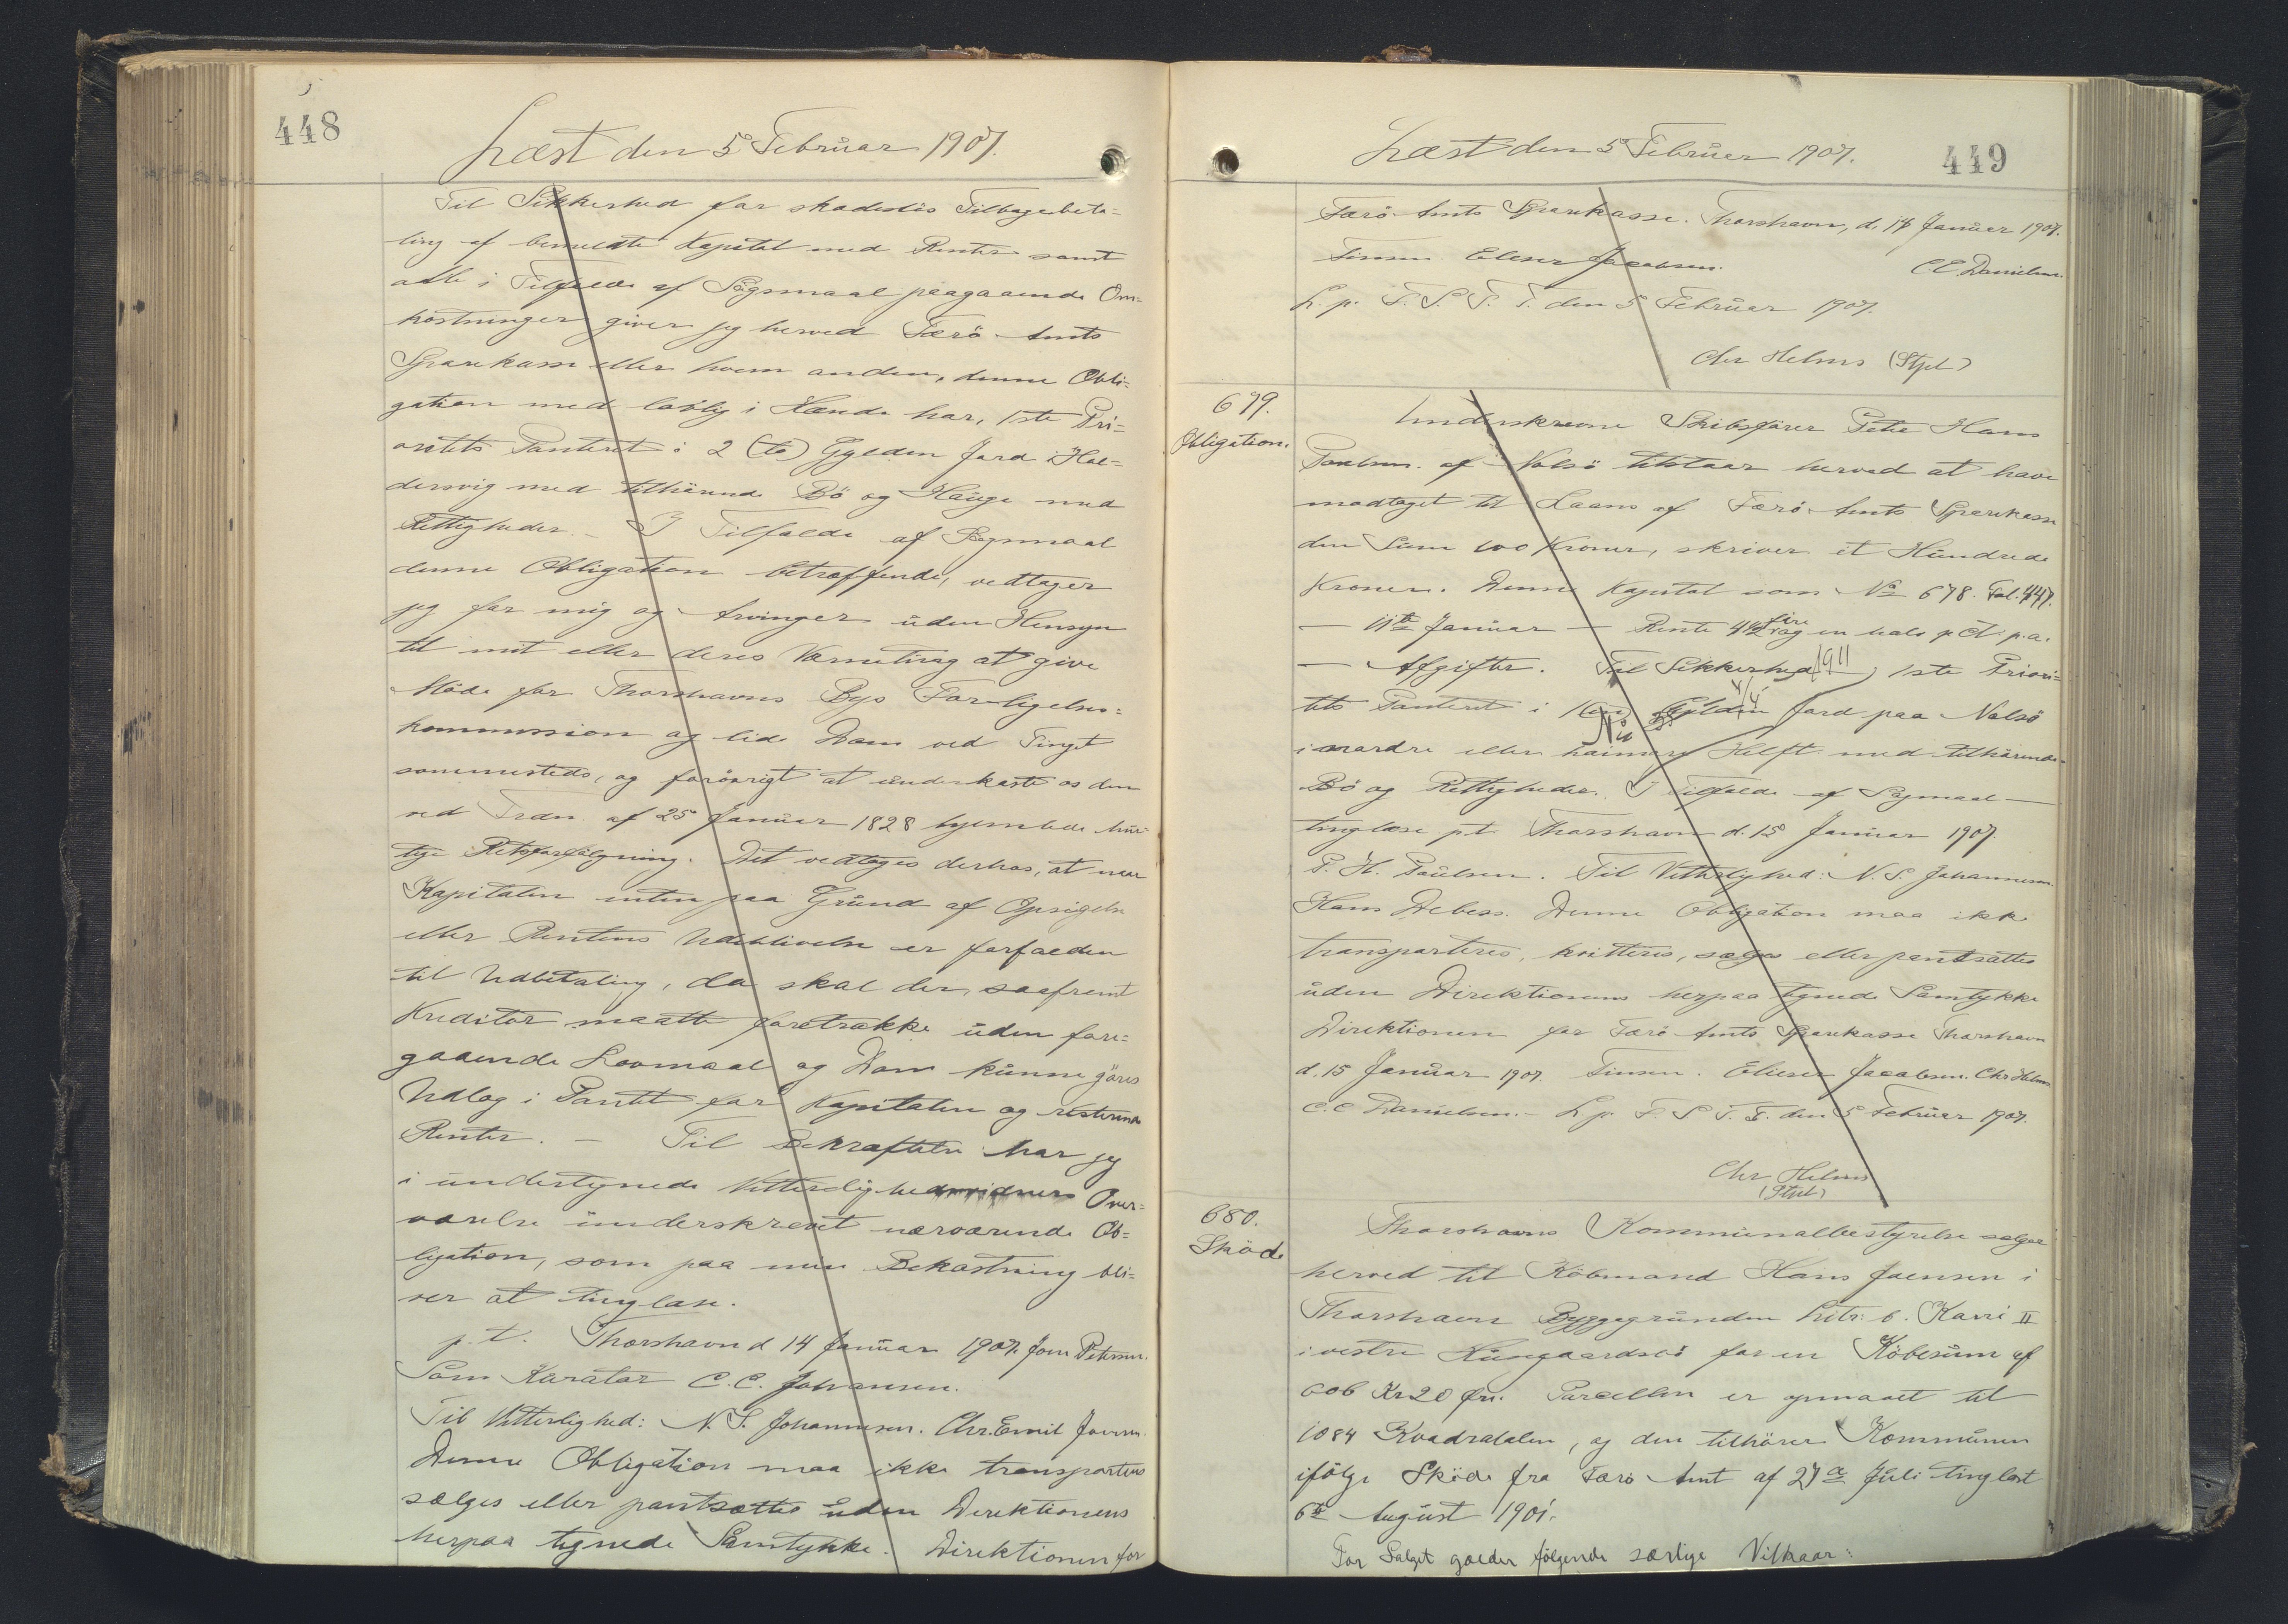 448
Læst den 5 Februar 1907.
Til Sikkerhed for skadesløs Tilbagebeta=
ling af bemeldte Kapital med Renter samt
alle i Tilfælde af Søgsmaal paagaaende Om=
kostninger giver jeg herved Færø Amts
Sparekasse eller hvem anden, denne Obli=
gation med lovlig i Hænde har, 1ste Pri=
oritets Panteret i 2 (to) Gylden Jord i Hal=
dersvig med tilhørende Bø og Hauge med
Rettigheder. - I Tilfælde af Søgsmaal
denne Obligation betræffende, vedtager
jeg for mig og Arvinger uden Hensyn
til mit eller deres Værneting at give
Møde for Thorshavns Bys Forligelses=
kommission og lide Dom ved Tinget
sammesteds, og forøvrigt at underkaste os den
ved Frdn. af 25 Januar 1828 hjemlede hur=
tige Retsforfølgning. Det vedtages derhos, at naar
Kapitalen enten paa Grund af Opsigelse
eller Rentens Udeblivelse er forfalden
til Udbetaling, da skal der, saafremt
Kreditor maatte foretrække uden fore=
gaaende Lovmaal og Dom kunne gøres
Udlæg i Pantet for Kapitalen og resterende
Renter. - Til Bekræftelse har jeg
i undertegnede Vitterlighedsvidners Over=
værelse underskrevet nærværende Ob=
ligation, som paa min Bekostning bli=
ver at tinglæse.
p. t. Thorshavn d 14 Januar 1907. Petersen.
Som Kurator C. C. Johansen.
Til Vitterlighed: N. S. Johannesen. Chr. Emil
Denne Obligation maa ikke transporteres
sælges eller pantsættes uden Direktionens
herpaa tegnede Samtykke. Direktionen for
449
Læst den 5 Februar 1907.
Færø Amts Sparekasse. Thorshavn, d. 14 Januar 1907.
Finsen. Elieser Jacobsen. C.C. Danielsen.
L. p. F. S. T. T. den 5 Februar 1907.
Chr Helms (Stpl)
679.
Obligation.
Underskrevne Skibsfører Peter Hans
Poulsen. af Nolsø tilstaar herved at have
modtaget til Laans af Færø Amts Sparekasse
den Sum 100 Kroner, skriver et Hundrede
Kroner. Denne Kapital som No 678. Fol. 447.
- 11te Januar - Rente 4½ fire og en halv p Ct. p.a.
- Afgifter. Til Sikkerhed - 1ste Priori=
tets Panteret i 1 Gylden Jord paa Nolsø
i eller Helft med tilhørende
Bø og Rettigheder. I Tilfælde af Søgsmaal -
tinglæse p.t. Thorshavn d. 15 Januar 1907.
P. H. Paulsen. Til Vitterlighed: N. S. Johannesen.
Hans Debess. Denne Obligation maa ikke
transporteres, kvitteres, sælges eller pantsættes
uden Direktionens herpaa tegnede Samtykke
Direktionen for Færø Amts Sparekasse Thorshavn
d. 15 Januar 1907. Finsen. Elieser Jacobsen. Chr Helms.
C. C Danielsen. - L. p. F. S T. T. den 5 Februar 1907.
Chr Helms
(Stpl)
680.
Skøde
Thorshavns Kommunalbestyrelse sælger
herved til Købmand Hans Joensen i
Thorshavn Byggegrunden Litr: b. II
i vestre for en Købesum af
Kr 20 Øre. Parcellen er opmaalt til
1084 Kvadratalen, og den tilhører Kommunen
ifølge Skøde fra Færø Amt af 27de Juli tinglæst
6te August 1901.
For Salget gælder følgende særlige Vilkaar: